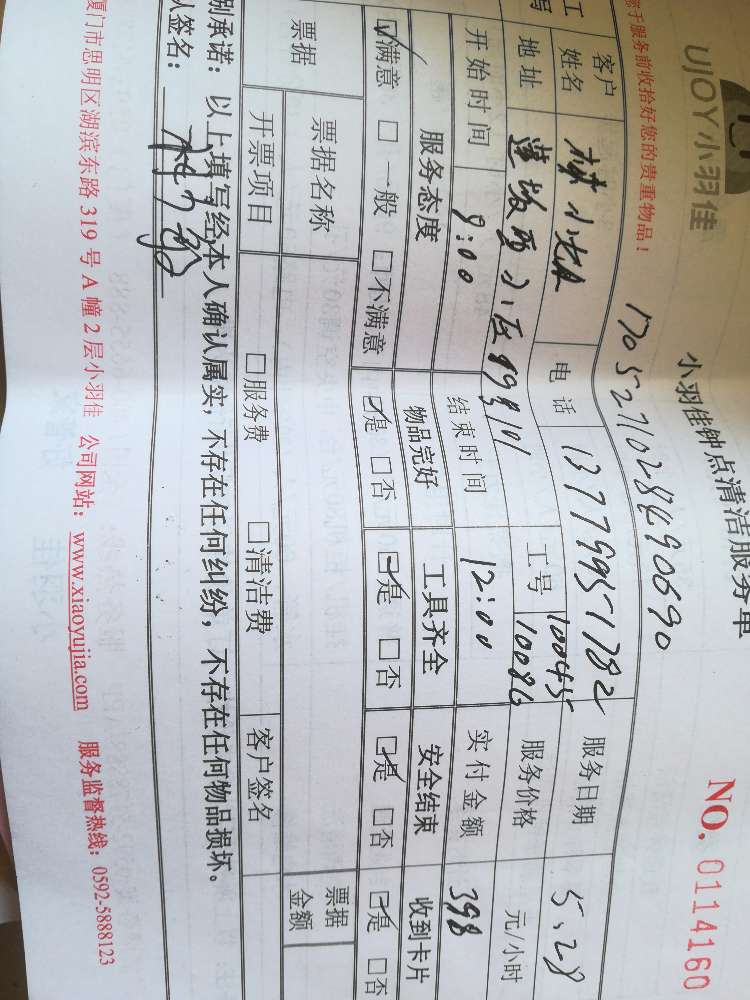 UJOY小羽佳
小羽佳钟点清洁服务单
NO. 0114160
于服务前收拾好您的贵重物品！
1705271028490690
客户
姓名 林小姐 电话 13779951782 服务日期 5.28
地址 莲坂西小区99号101 工号 100435 10086 服务价格 元/小时
开始时间 9:00 结束时间 12:00 实付金额 398
服务态度 物品完好 工具齐全 安全结束 收到卡片
☑满意 □一般 □不满意 ☑是 □否 ☑是 □否 ☑是 □否 ☑是 □否
票据 票据名称 票据金额
开票项目 □服务费 □清洁费 客户签名
别承诺：以上填写经本人确认属实，不存在任何纠纷，不存在任何物品损坏。
人签名：
厦门市思明区湖滨东路 319 号 A 幢 2 层小羽佳 公司网站：www.xiaoyujia.com 服务监督热线：0592-5888123